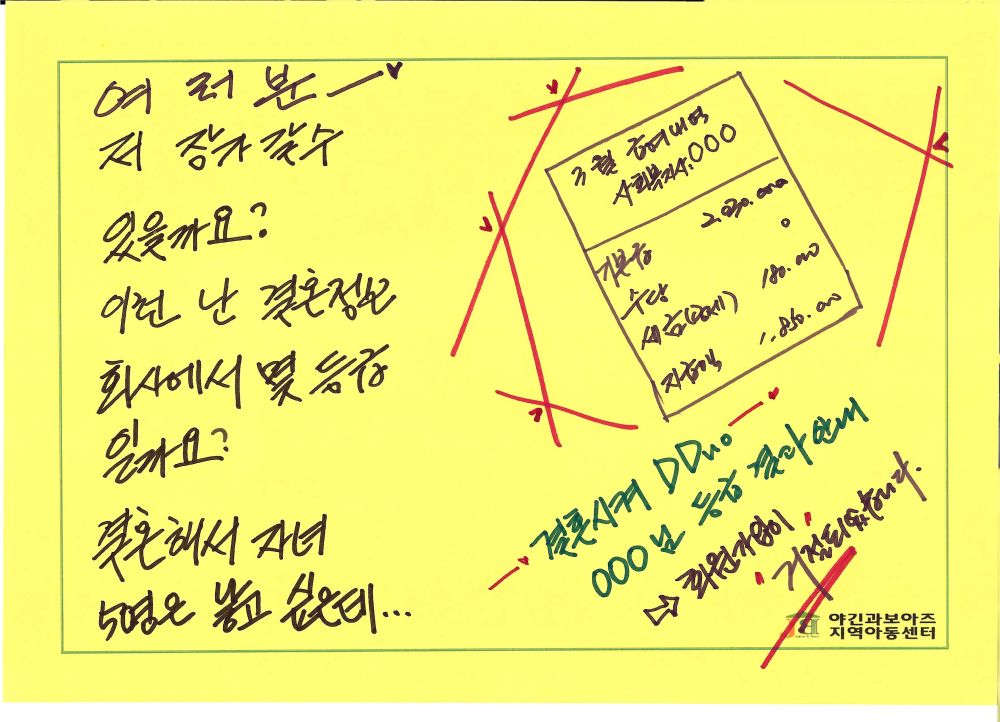 여러분
저 장가갈수
있을까요?
이런 난 결혼정보
회사에서 몇 등급
일까요?
결혼해서 자녀
5명은 낳고 싶은데...
3월 급여내역
사회복지사.OOO
기본급 2.030.000
수당 0
세금(공제) 180.000
지급액 1.850.000
결혼시켜 DDuo
OOO님 등급 결과 안내
⇨ 회원가입이
"거절되었습니다.
야긴과보아즈
지역아동센터